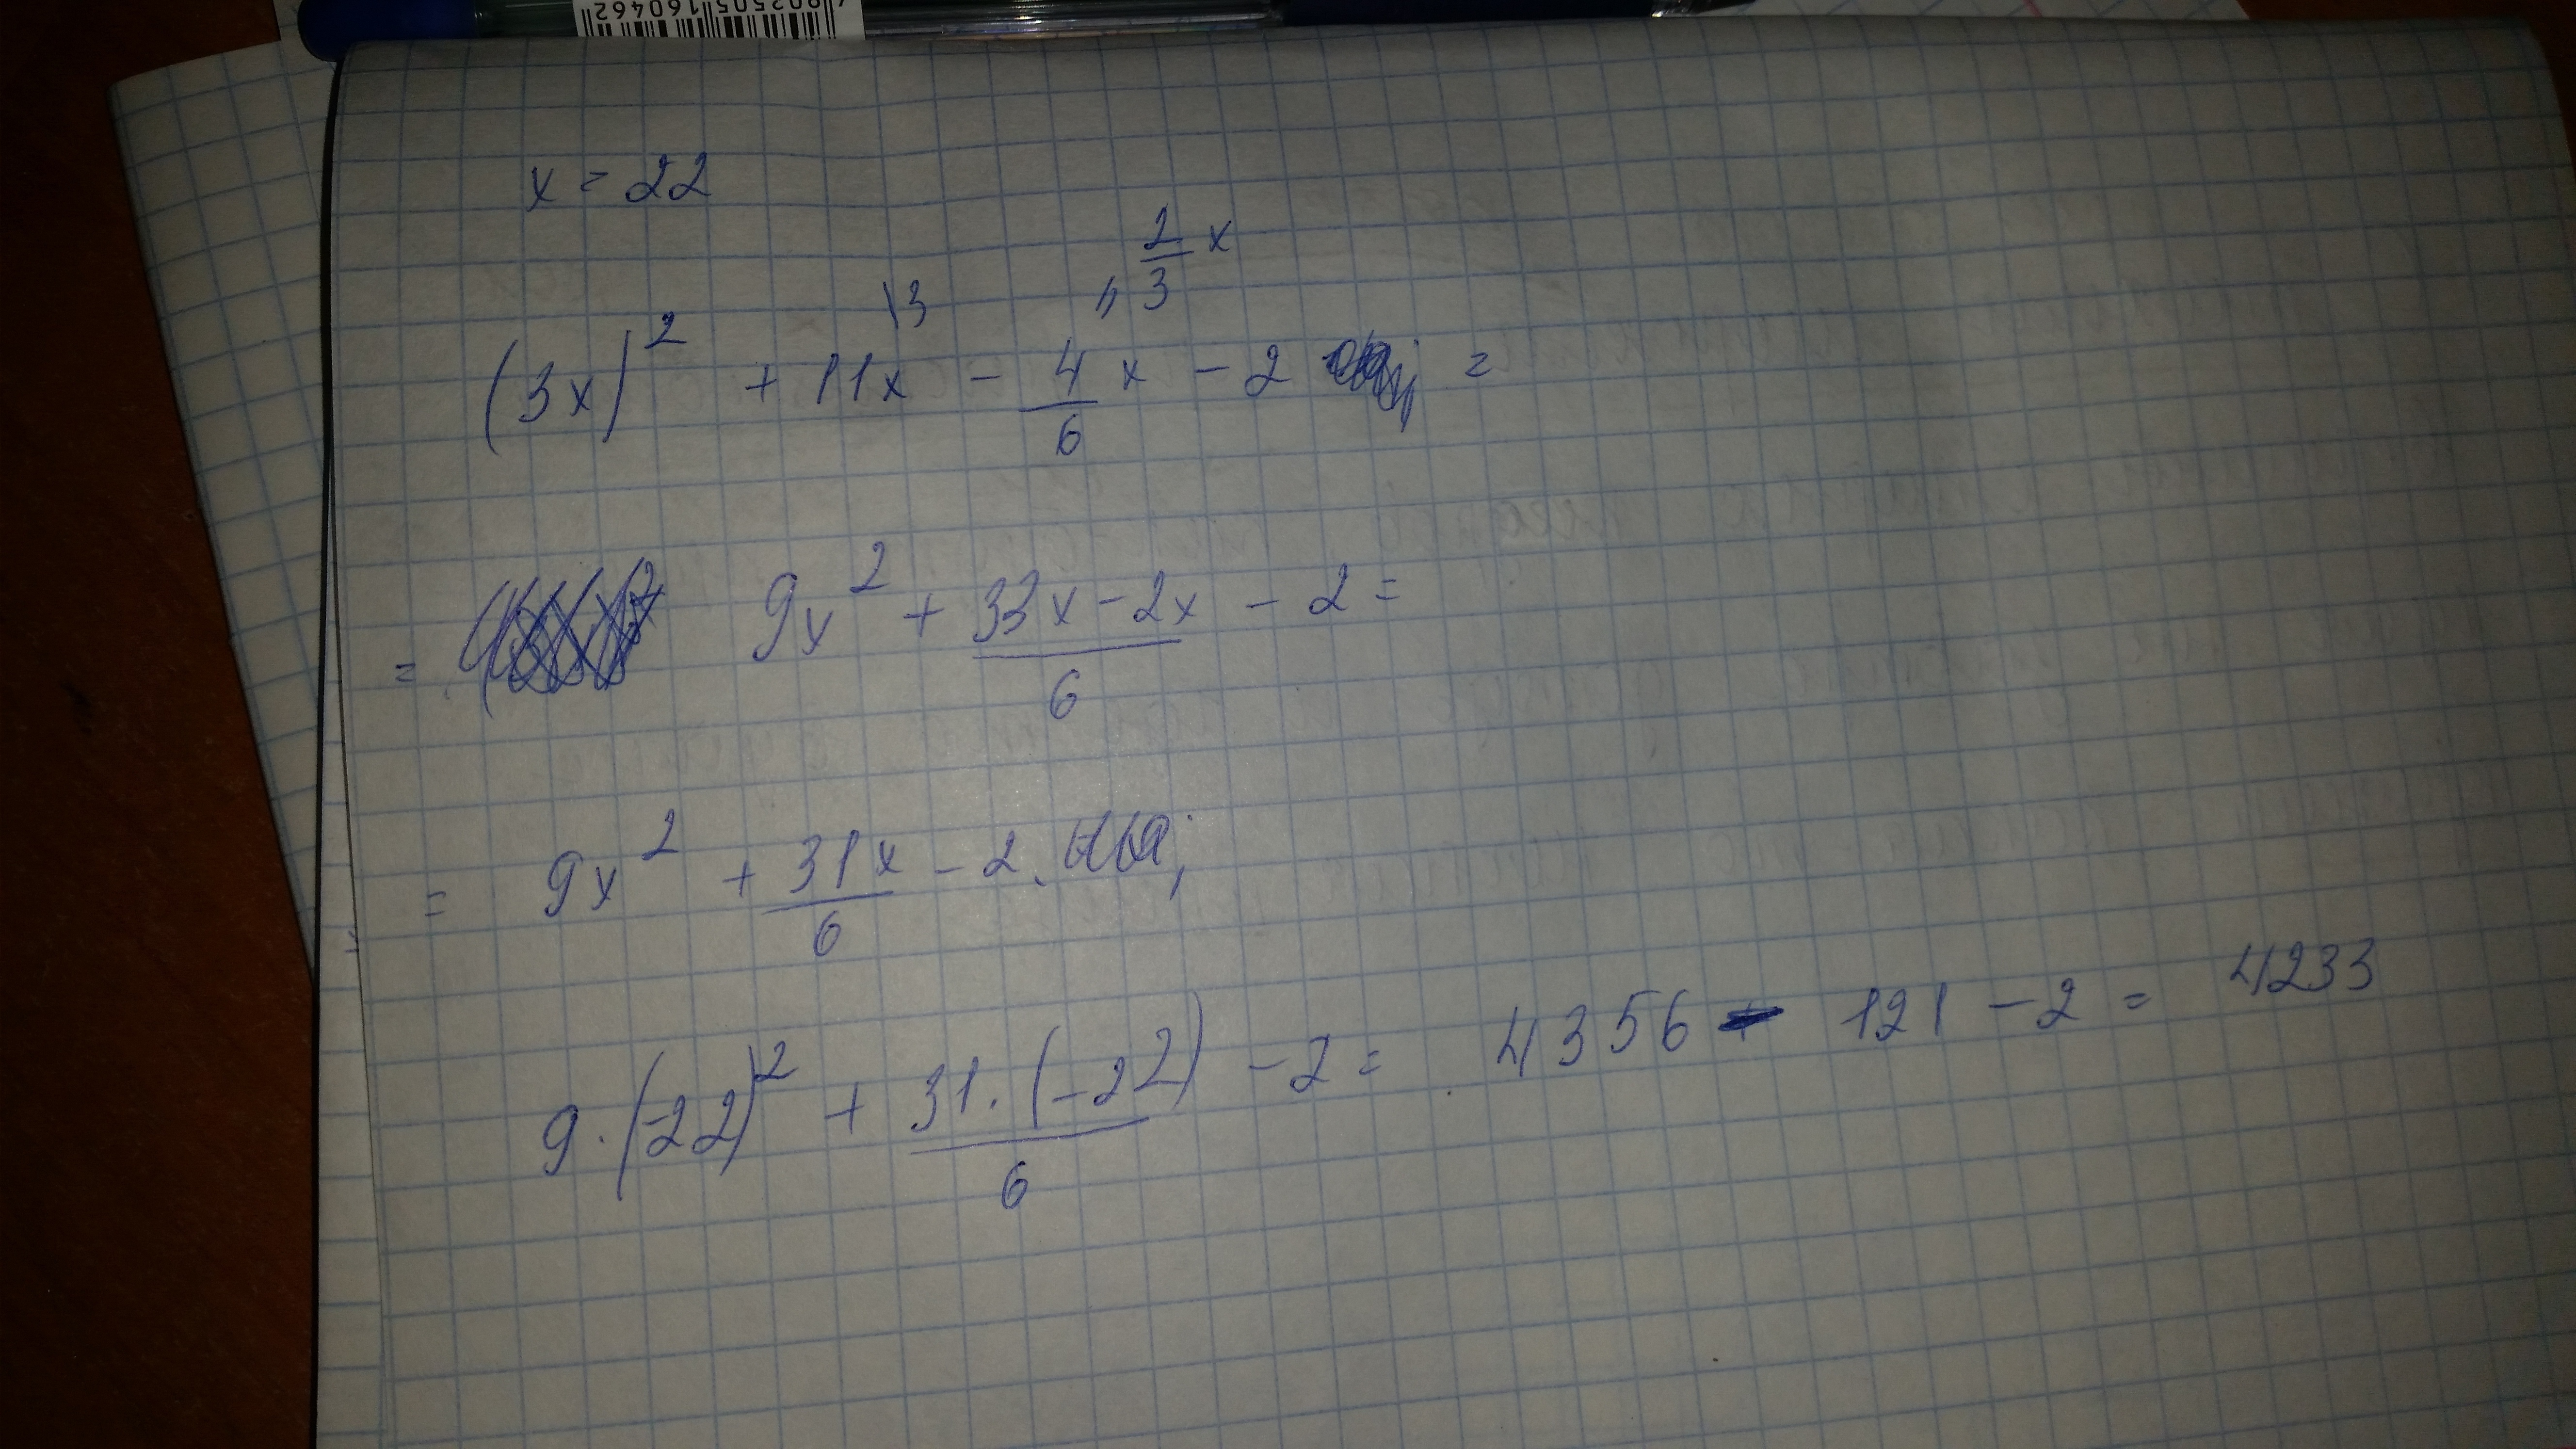 4802505160462
x = 22
2/3 x
\3 //
(3x)² + 11x - 4/6 x - 2 =
= 9x² + (33x - 2x)/6 - 2 =
= 9x² + 31x/6 - 2.
9·(-22)² + 31·(-22)/6 - 2 = 4356 - 121 - 2 = 4233